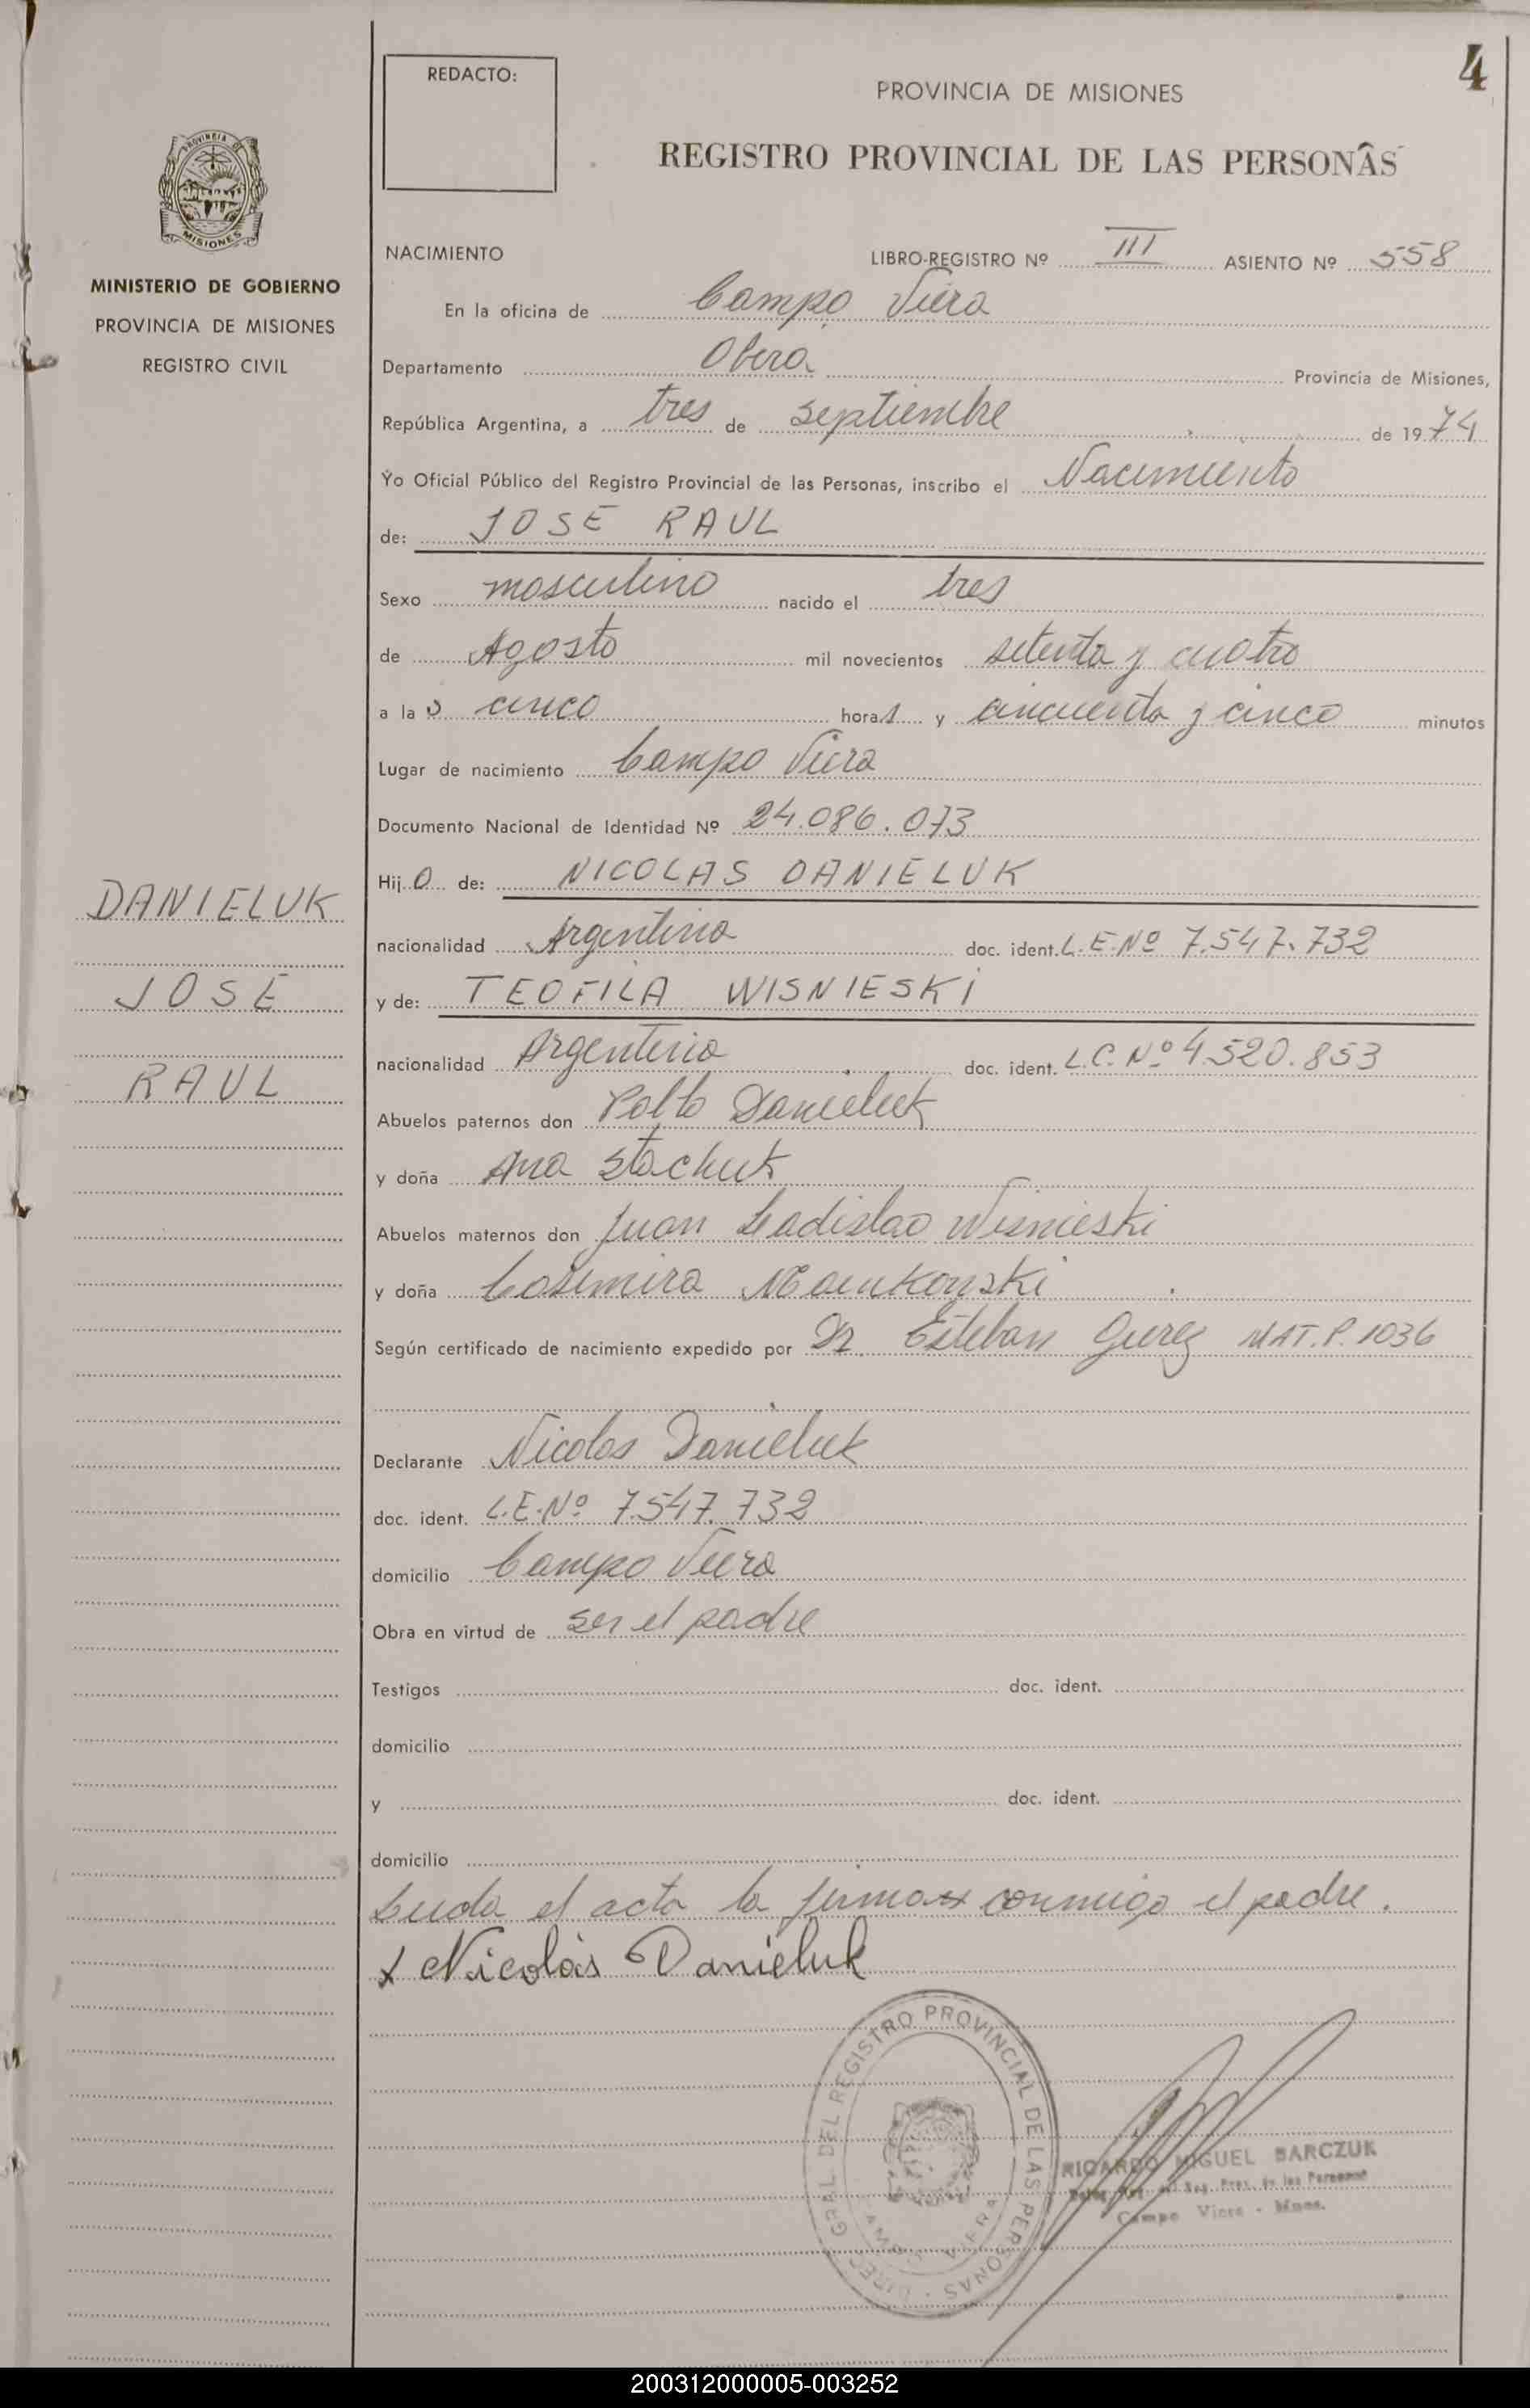 4
REDACTO:
PROVINCIA DE MISIONES
REGISTRO PROVINCIAL DE LAS PERSONAS
PROVINCIA DE
MISIONES
MINISTERIO DE GOBIERNO
PROVINCIA DE MISIONES
REGISTRO CIVIL
NACIMIENTO LIBRO-REGISTRO Nº III ASIENTO Nº 558
En la oficina de Campo Viera
Departamento Obera Provincia de Misiones,
República Argentina, a tres de septiembre de 1974
Yo Oficial Público del Registro Provincial de las Personas, inscribo el Nacimiento
de: JOSE RAUL
Sexo masculino nacido el tres
de Agosto mil novecientos setenta y cuatro
a la s cinco horas y cincuenta y cinco minutos
Lugar de nacimiento Campo Viera
Documento Nacional de Identidad Nº 24.086.073
Hijo de: NICOLAS DANIELUK
DANIELUK
nacionalidad Argentina doc. ident. L.E.Nº 7.547.732
JOSE
y de: TEOFILA WISNIESKI
nacionalidad Argentina doc. ident. L.C.Nº 4.520.853
RAUL
Abuelos paternos don Danieluk
y doña Ana Stachuk
Abuelos maternos don Juan Ladislao Wisnieski
y doña Casimira
Según certificado de nacimiento expedido por Dr. Esteban MAT.P.1036
Declarante Nicolas Danieluk
doc. ident. L.E.Nº 7.547.732
domicilio Campo Viera
Obra en virtud de ser el padre
Testigos doc. ident.
domicilio
y doc. ident.
domicilio
Leida el acta la firma conmigo el padre.
x Nicolás Danieluk
DIREC. GRAL. DEL REGISTRO PROVINCIAL DE LAS PERSONAS
CAMPO VIERA
RICARDO MIGUEL BARCZUK
Reg. Prov. de las Personas
Campo Viera - Mnes.
200312000005-003252